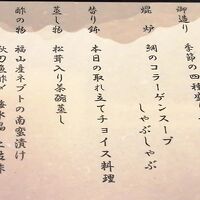 御造り
季節の四種盛
焜炉
鯛のコラーゲンスープ
しゃぶしゃぶ
替り鉢
本日の取れ立てチョイス料理
蒸し物
松茸入り茶碗蒸し
酢の物
福山産ネブトの南蛮漬け